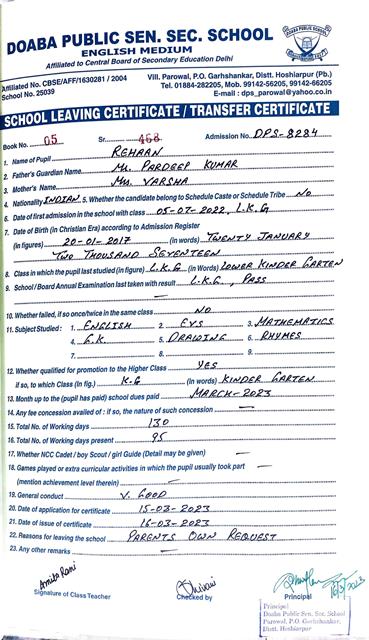 DOABA PUBLIC SEN. SEC. SCHOOL
ENGLISH MEDIUM
Affiliated to Central Board of Secondary Education Delhi
Affiliated No. CBSE/AFF/1630281 / 2004
School No. 25039
Vill. Parowal, P.O. Garhshankar, Distt. Hoshiarpur (Pb.)
Tel. 01884-282205, Mob. 99142-56205, 99142-66205
E-mail : dps_parowal@yahoo.co.in
SCHOOL LEAVING CERTIFICATE / TRANSFER CERTIFICATE
Book No. 05 Sr. 468 Admission No. DPS-8284
1. Name of Pupil REHAAN
2. Father's Guardian Name Mr. PARDEEP KUMAR
3. Mother's Name Mrs. VARSHA
4. Nationality INDIAN 5. Whether the candidate belong to Schedule Caste or Schedule Tribe NO
6. Date of first admission in the school with class 05-07-2022, L.K.G
7. Date of Birth (in Christian Era) according to Admission Register
(in figures) 20-01-2017 (in words) TWENTY JANUARY
TWO THOUSAND SEVENTEEN
8. Class in which the pupil last studied (in figure) L.K.G (in Words) LOWER KINDER GARTEN
9. School / Board Annual Examination last taken with result L.K.G, PASS
10. Whether failed, if so once/twice in the same class NO
11. Subject Studied : 1. ENGLISH 2. EVS 3. MATHEMATICS
4. G.K 5. DRAWING 6. RHYMES
7. 8. 9.
12. Whether qualified for promotion to the Higher Class YES
if so, to which Class (in fig.) K.G (In words) KINDER GARTEN
13. Month up to the (pupil has paid) school dues paid MARCH-2023
14. Any fee concession availed of : if so, the nature of such concession —
15. Total No. of Working days 130
16. Total No. of Working days present 95
17. Whether NCC Cadet / boy Scout / girl Guide (Detail may be given) —
18. Games played or extra curricular activities in which the pupil usually took part —
(mention achievement level therein) —
19. General conduct V. GOOD
20. Date of application for certificate 15-03-2023
21. Date of issue of certificate 16-03-2023
22. Reasons for leaving the school PARENTS OWN REQUEST
23. Any other remarks —
Amita Rani
Signature of Class Teacher
Shivani
Checked by
16/3/2023
Principal
Principal
Doaba Public Sen. Sec. School
Parowal, P.O. Garhshankar,
Distt. Hoshiarpur